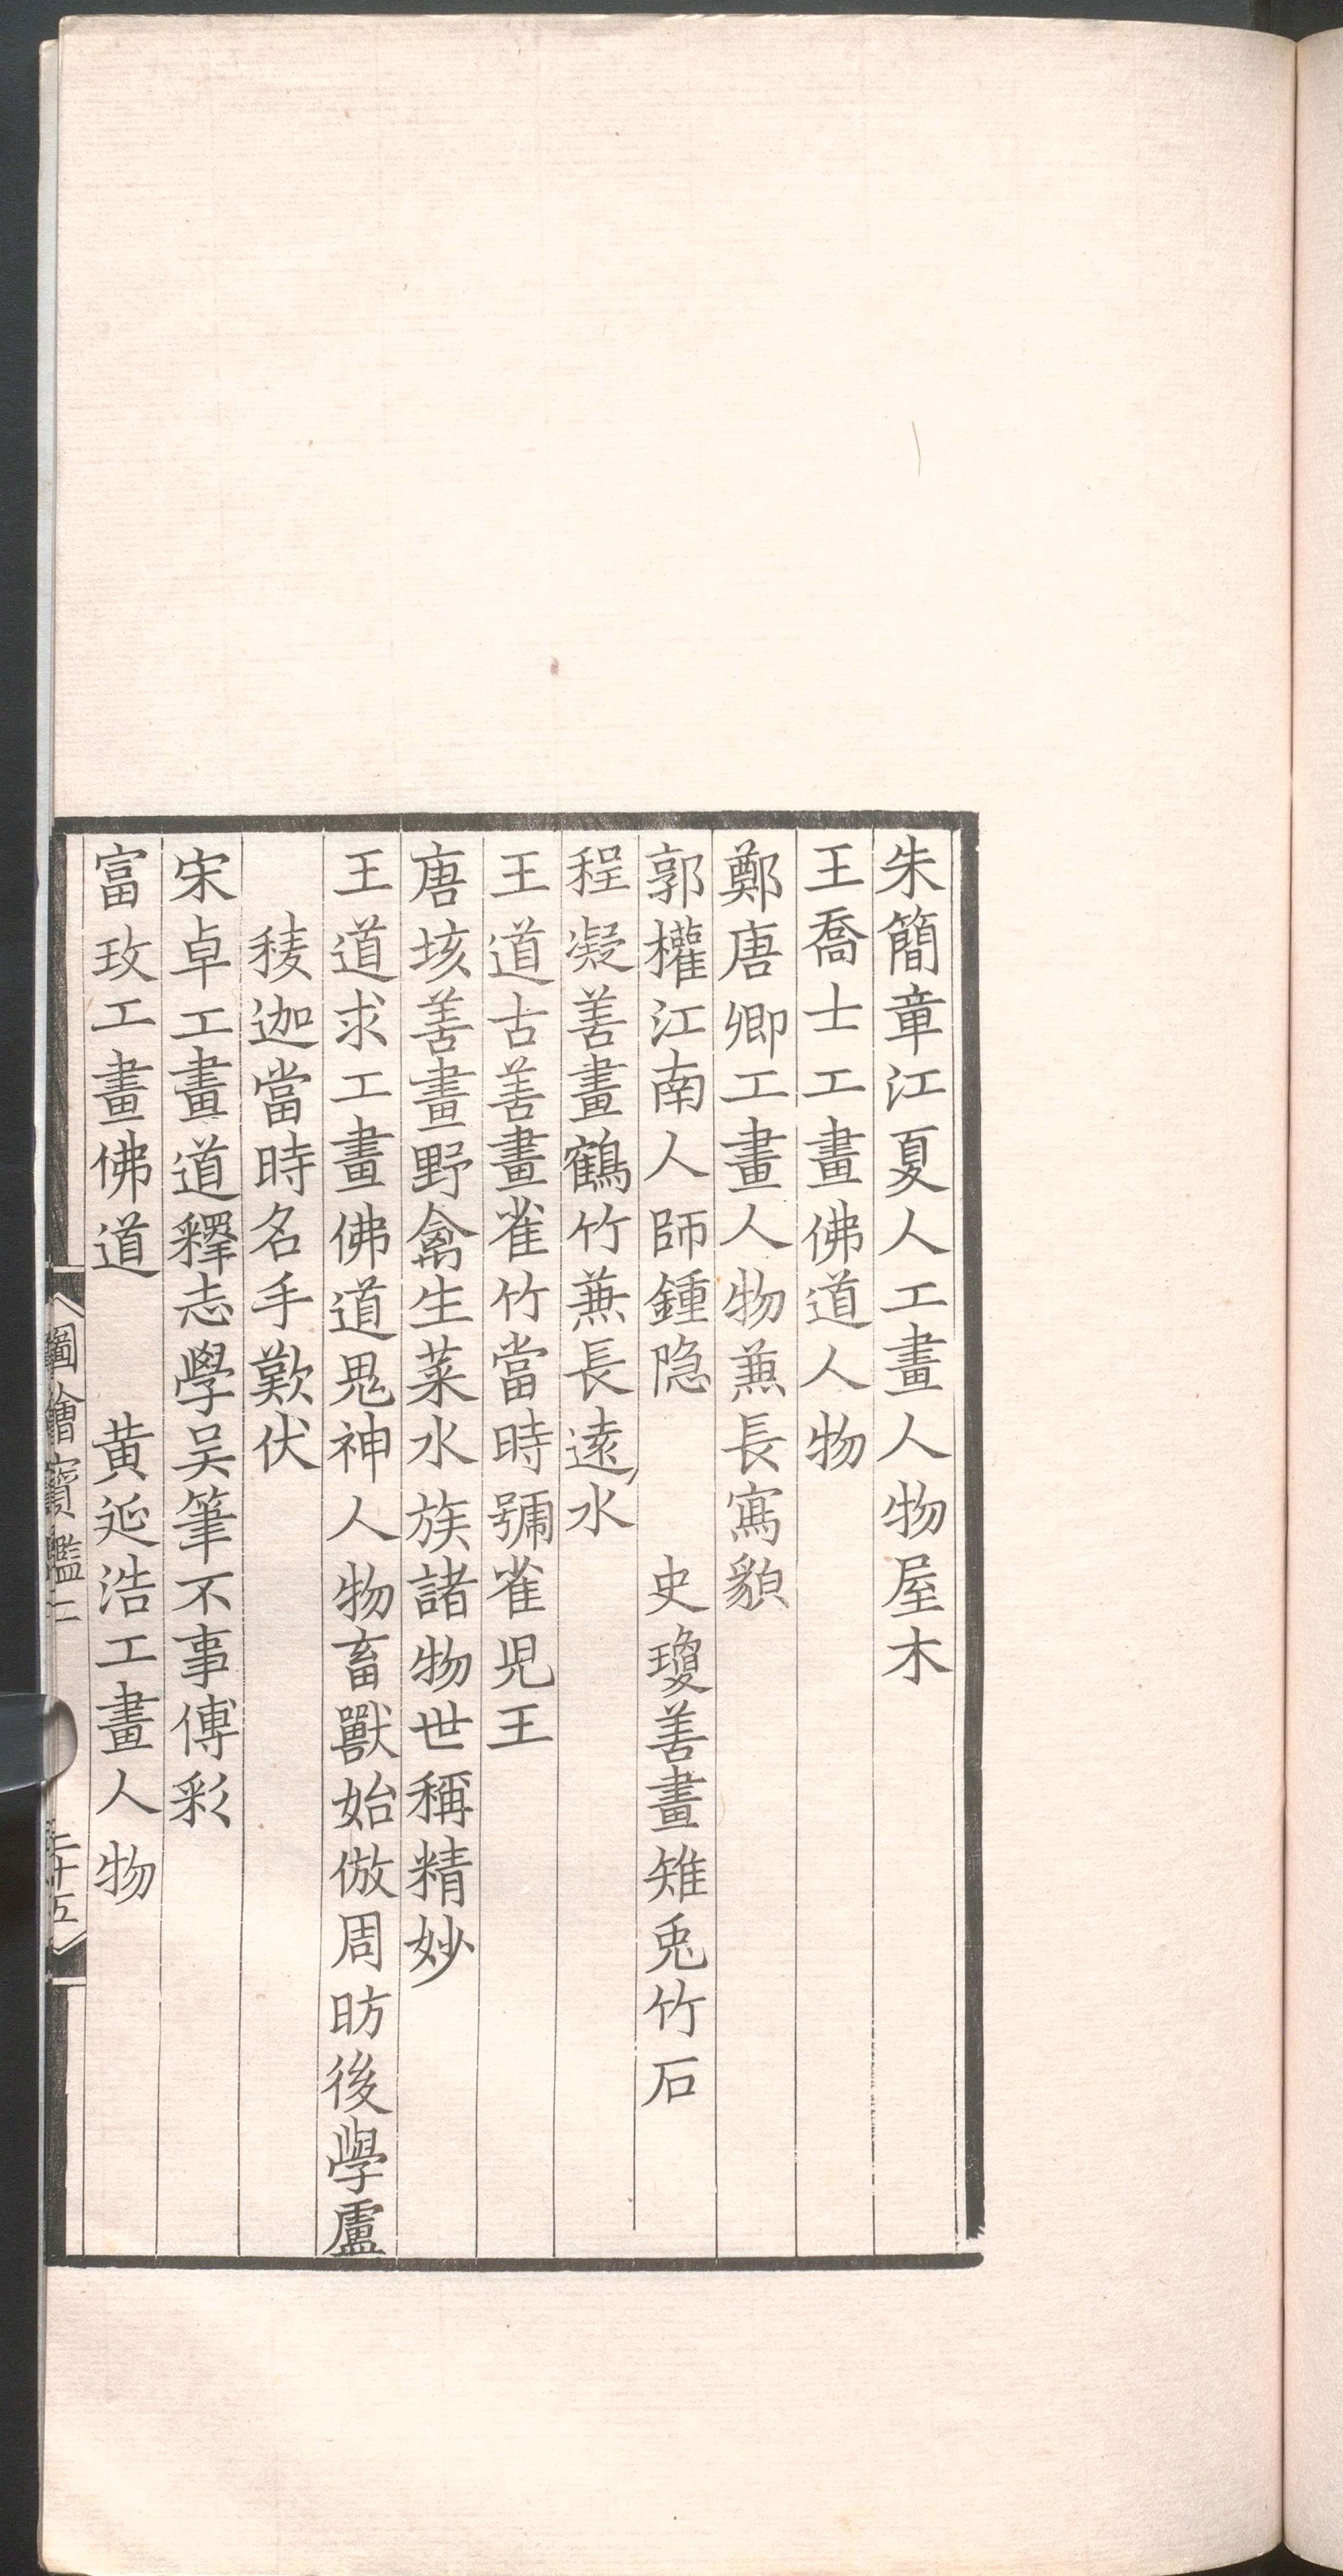 朱簡章江夏人工畫人物屋木
王喬士工畫佛道人物
鄭唐卿工畫人物兼長寫貌
郭權江南人師鍾隐 史瓊善畫雉兎竹石
程凝善畫鶴竹兼長遠水
王道古善畫雀竹當時號雀児王
唐垓善畫野禽生菜水族諸物世稱精妙
王道求工畫佛道鬼神人物畜獸始倣周昉後學盧
稜迦當時名手歎伏
宋卓工畫道釋志學吴筆不事傅彩
富玫工畫佛道 黄延浩工畫人物
圖繪寶鑑二 二十五